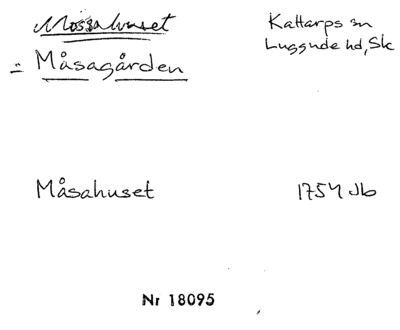 Mossahuset
Kattarps sn
Luggude hd, Sk
= Måsagården
Måsahuset 1754 Jb
Nr 18095